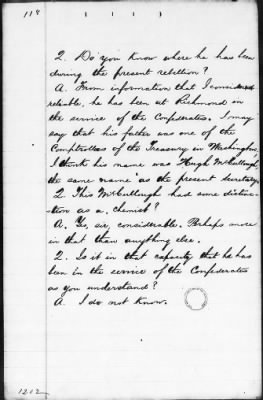 118
Q. Do you know where he has been
during the present rebellion?
A. From information that I considered
reliable, he has been at Richmond in
the service of the Confederates. I may
say that his father was one of the
Comptrollers of the Treasury in Washington.
I think his name was Hugh McCullough
the same name as the present secretary.
Q. This McCullough had some distinc-
tion as a chemist?
A. Yes, sir, considerable. Perhaps more
in that than anything else.
Q. Is it in that capacity that he has
been in the service of the Confederates
as you understand?
A. I do not know.
1212